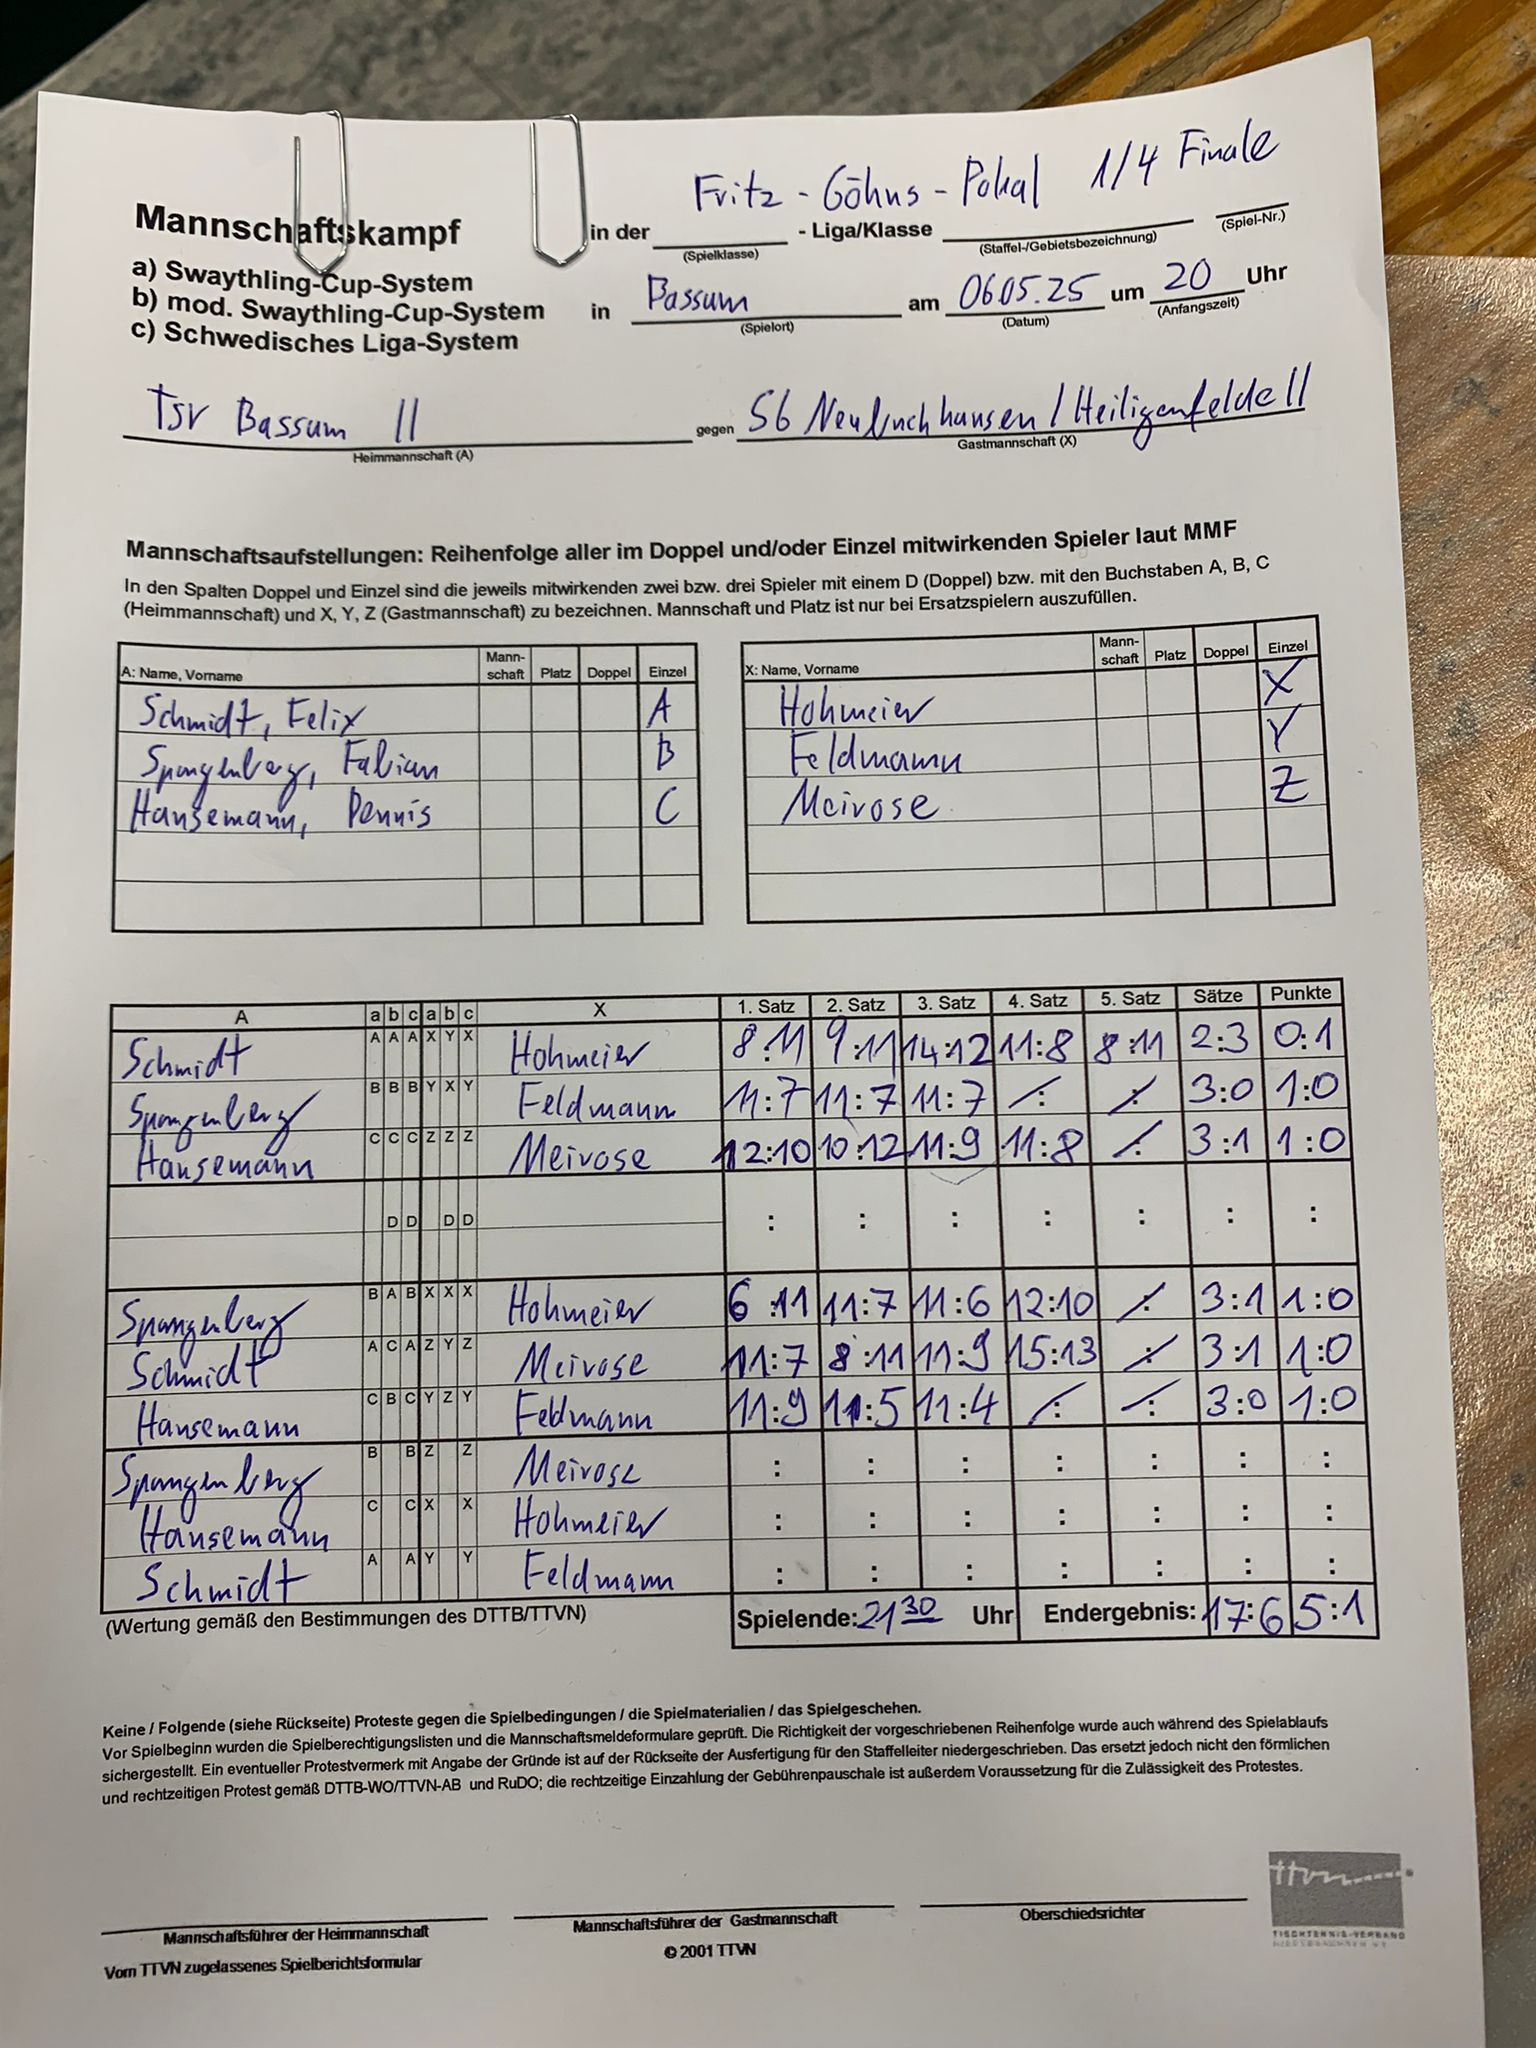 Fritz - Göhns - Pokal 1/4 Finale
Mannschaftskampf in der - Liga/Klasse
(Spielklasse) (Staffel-/Gebietsbezeichnung) (Spiel-Nr.)
a) Swaythling-Cup-System
b) mod. Swaythling-Cup-System in Bassum am 06.05.25 um 20 Uhr
(Spielort) (Datum) (Anfangszeit)
c) Schwedisches Liga-System
TSV Bassum II gegen SG Neubruchhausen / Heiligenfelde II
Heimmannschaft (A) Gastmannschaft (X)
Mannschaftsaufstellungen: Reihenfolge aller im Doppel und/oder Einzel mitwirkenden Spieler laut MMF
In den Spalten Doppel und Einzel sind die jeweils mitwirkenden zwei bzw. drei Spieler mit einem D (Doppel) bzw. mit den Buchstaben A, B, C
(Heimmannschaft) und X, Y, Z (Gastmannschaft) zu bezeichnen. Mannschaft und Platz ist nur bei Ersatzspielern auszufüllen.
A: Name, Vorname Mann-schaft Platz Doppel Einzel X: Name, Vorname Mann-schaft Platz Doppel Einzel
Schmidt, Felix A Hohmeier X
Spangenberg, Fabian B Feldmann Y
Hansemann, Dennis C Meirose Z
A a b c a b c X 1. Satz 2. Satz 3. Satz 4. Satz 5. Satz Sätze Punkte
Schmidt A A A X Y X Hohmeier 8:11 9:11 14:12 11:8 8:11 2:3 0:1
Spangenberg B B B Y X Y Feldmann 11:7 11:7 11:7 : : 3:0 1:0
Hansemann C C C Z Z Z Meirose 12:10 10:12 11:9 11:8 : 3:1 1:0
D D D D : : : : : : :
Spangenberg B A B X X X Hohmeier 6:11 11:7 11:6 12:10 : 3:1 1:0
Schmidt A C A Z Y Z Meirose 11:7 8:11 11:9 15:13 : 3:1 1:0
Hansemann C B C Y Z Y Feldmann 11:9 11:5 11:4 : : 3:0 1:0
Spangenberg B B Z Z Meirose : : : : : : :
Hansemann C C X X Hohmeier : : : : : : :
Schmidt A A Y Y Feldmann : : : : : : :
(Wertung gemäß den Bestimmungen des DTTB/TTVN) Spielende: 21 30 Uhr Endergebnis: 17:6 5:1
Keine / Folgende (siehe Rückseite) Proteste gegen die Spielbedingungen / die Spielmaterialien / das Spielgeschehen.
Vor Spielbeginn wurden die Spielberechtigungslisten und die Mannschaftsmeldeformulare geprüft. Die Richtigkeit der vorgeschriebenen Reihenfolge wurde auch während des Spielablaufs
sichergestellt. Ein eventueller Protestvermerk mit Angabe der Gründe ist auf der Rückseite der Ausfertigung für den Staffelleiter niedergeschrieben. Das ersetzt jedoch nicht den förmlichen
und rechtzeitigen Protest gemäß DTTB-WO/TTVN-AB und RuDO; die rechtzeitige Einzahlung der Gebührenpauschale ist außerdem Voraussetzung für die Zulässigkeit des Protestes.
ttvn
TISCHTENNIS-VERBAND
Mannschaftsführer der Heimmannschaft Mannschaftsführer der Gastmannschaft Oberschiedsrichter
Vom TTVN zugelassenes Spielberichtsformular © 2001 TTVN